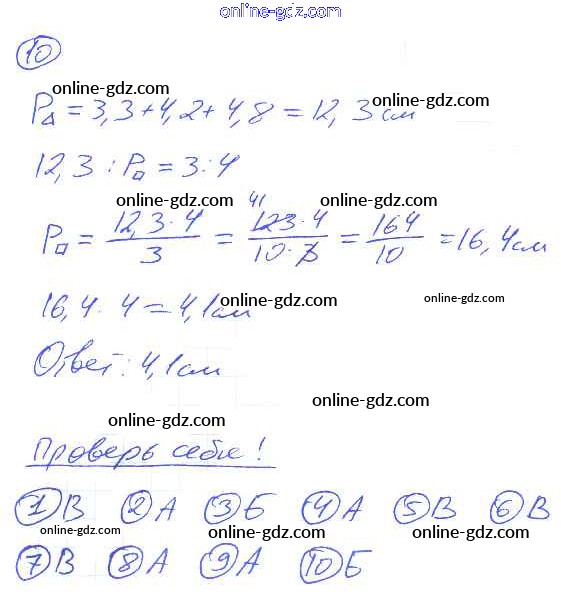 online-gdz.com
10
online-gdz.com online-gdz.com
P△ = 3,3+4,2+4,8 = 12,3 см
12,3 : P□ = 3:4
online-gdz.com 41 online-gdz.com
P□ = 12,3·4/3 = 123·4/10·3 = 164/10 = 16,4 см
online-gdz.com online-gdz.com
16,4 : 4 = 4,1 см
Ответ: 4,1 см
online-gdz.com
online-gdz.com
Проверь себя!
1 В 2 А 3 Б 4 А 5 В 6 В
online-gdz.com online-gdz.com online-gdz.com
7 В 8 А 9 А 10 Б